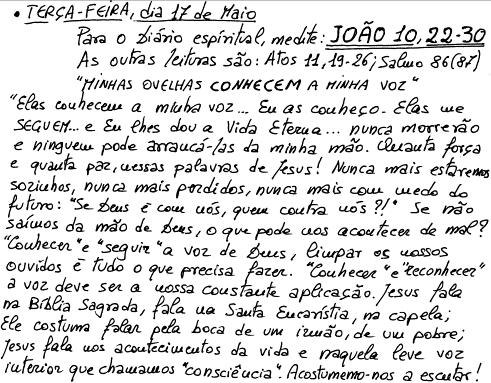 • TERÇA-FEIRA, dia 17 de Maio
Para o Diário espiritual, medite: JOÃO 10, 22-30
As outras leituras são: Atos 11, 19-26; Salmo 86(87)
"MINHAS OVELHAS CONHECEM A MINHA VOZ"
"Elas conhecem a minha voz... Eu as conheço. Elas me
SEGUEM... e Eu lhes dou a Vida Eterna... nunca morrerão
e ninguem pode arrancá-las da minha mão. Quanta força
e quanta paz, nessas palavras de Jesus! Nunca mais estaremos
sozinhos, nunca mais perdidos, nunca mais com medo do
futuro: "Se Deus é com nós, quem contra nós?!" Se não
saímos da mão de Deus, o que pode nos acontecer de mal?
"Conhecer" e "seguir" a voz de Deus, limpar os nossos
ouvidos é tudo o que precisa fazer. "Conhecer" e "reconhecer"
a voz deve ser a nossa constante aplicação. Jesus fala
na Bíblia Sagrada, fala na Santa Eucaristia, na capela;
Ele costuma falar pela boca de um irmão, de um pobre;
Jesus fala nos acontecimentos da vida e naquela leve voz
interior que chamamos "consciência". Acostumemo-nos a escutar!